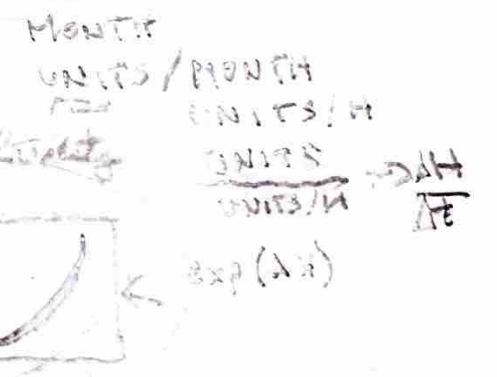 MONTH
UNITS/MONTH
UNITS/H
UNITS
UNITS/H → ΔH
Δt
← exp(Δx)